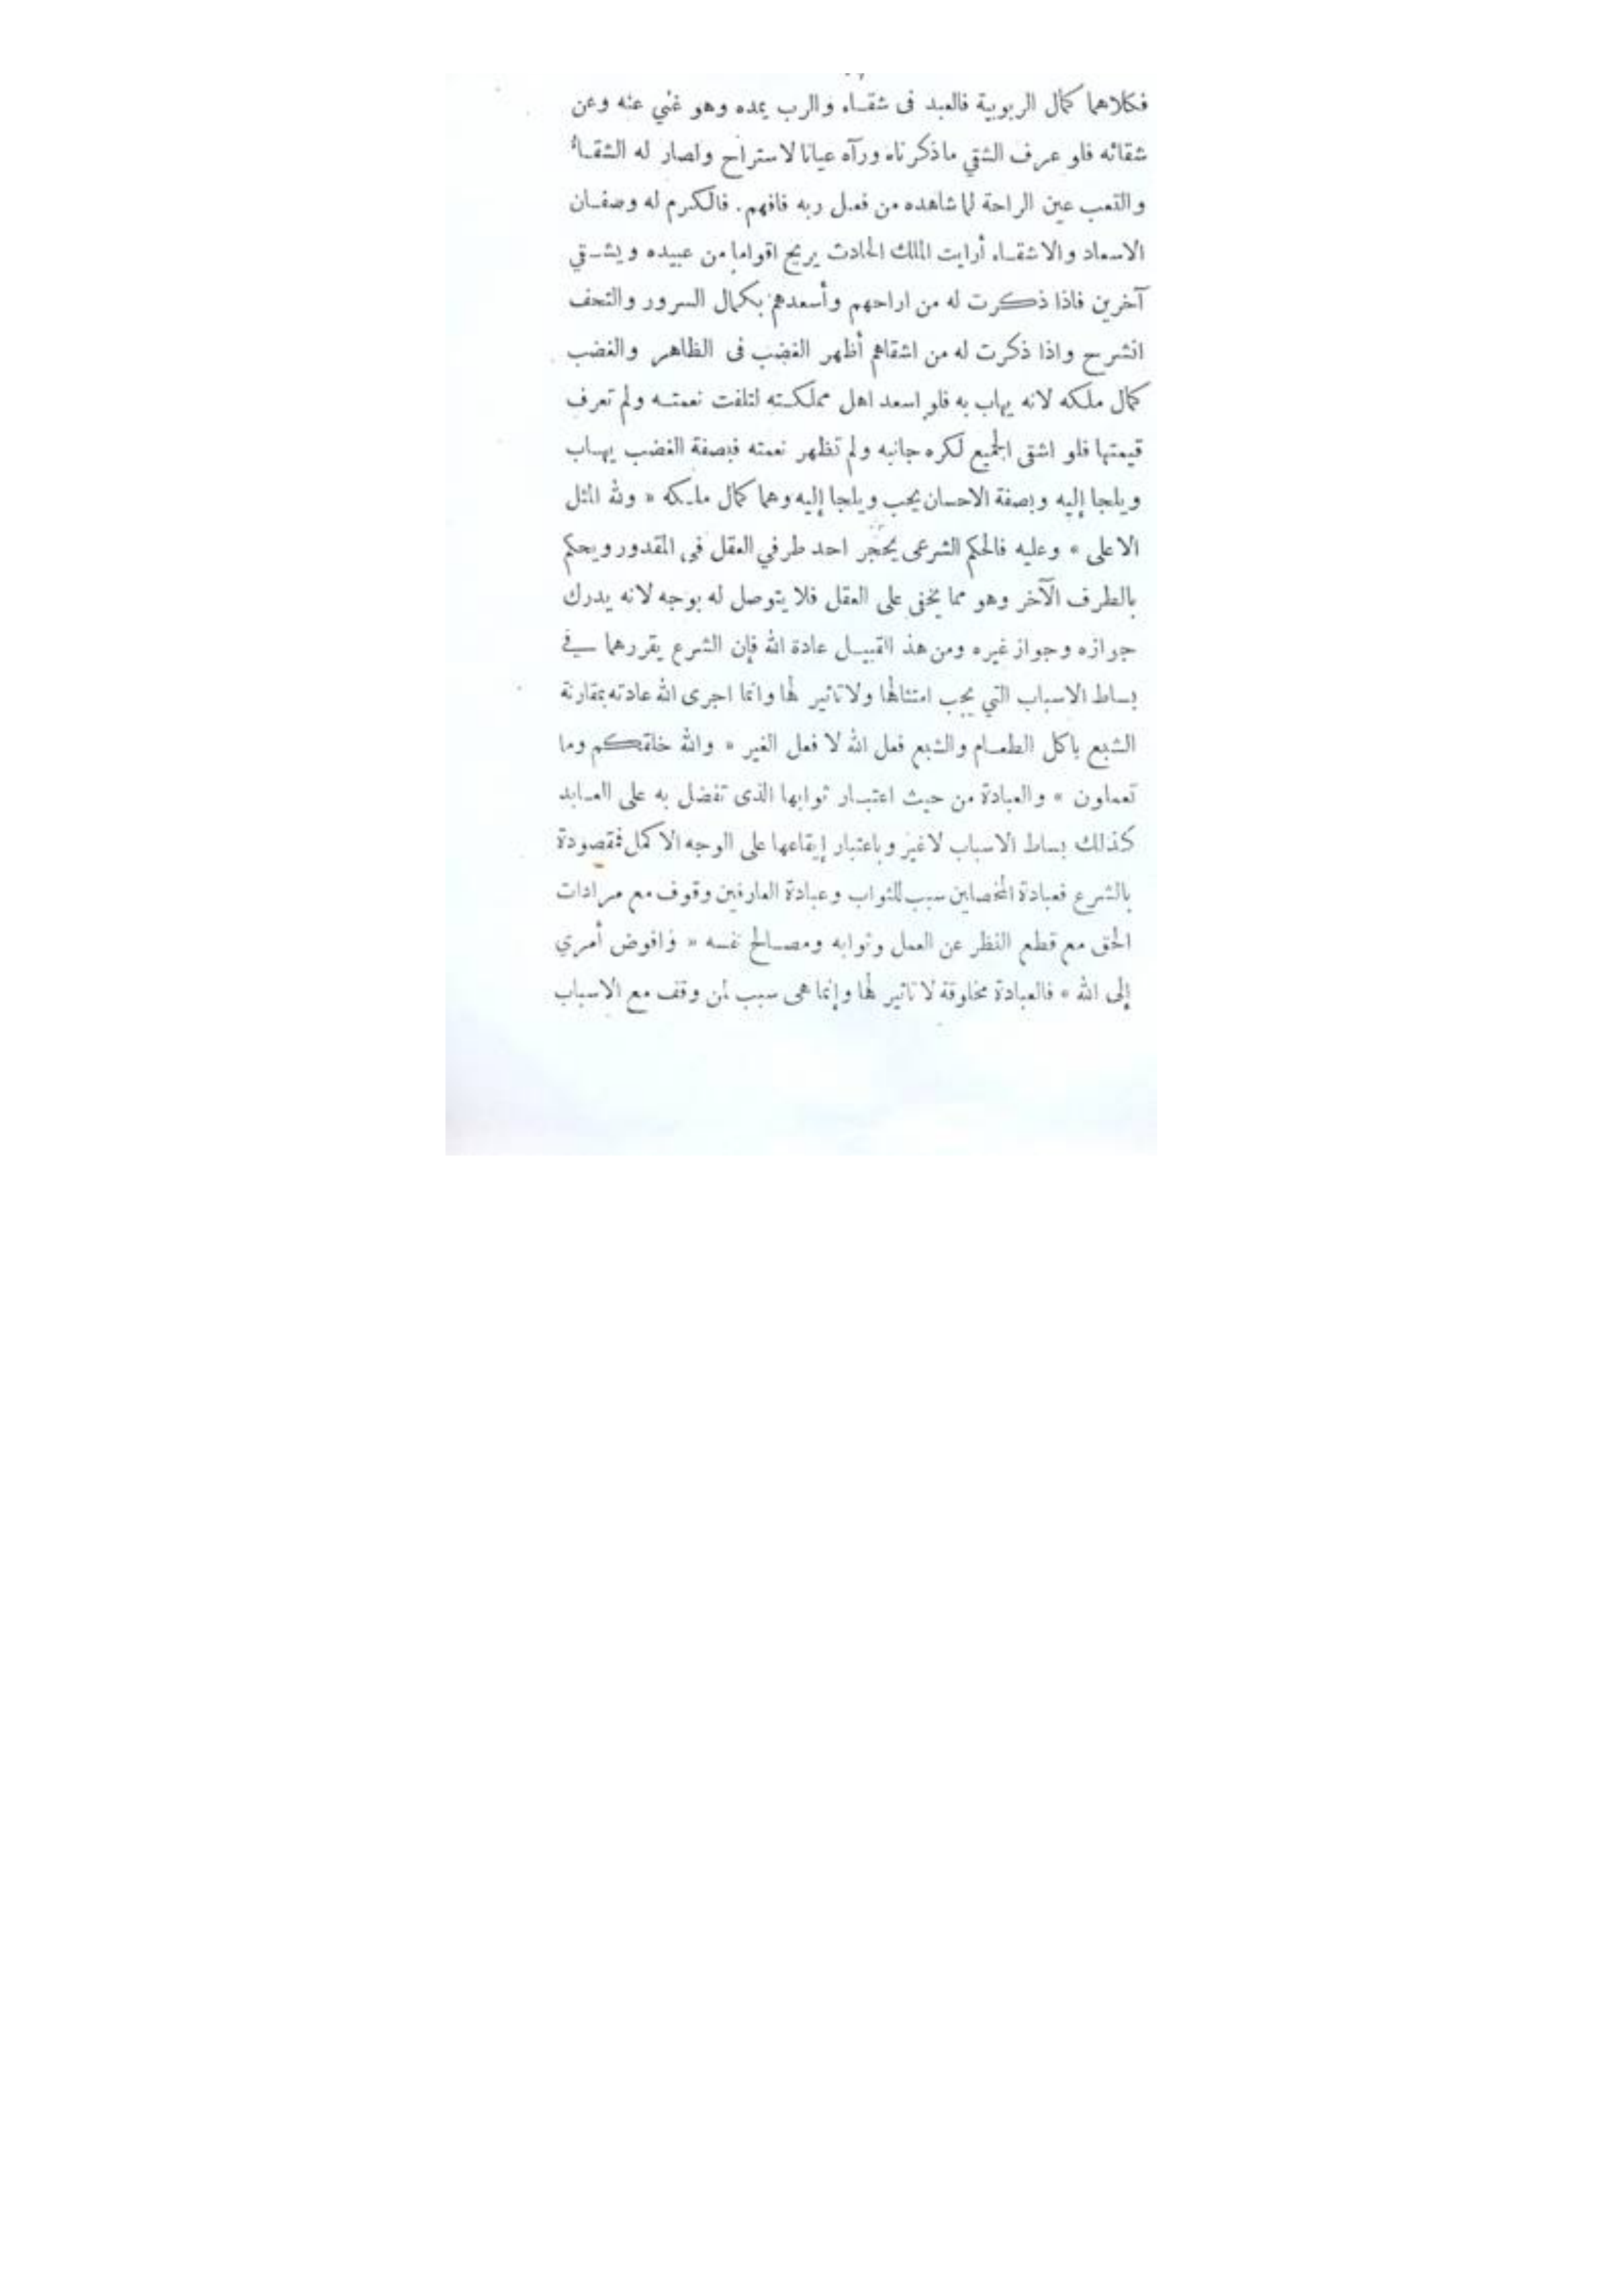 فكلاهما كمال الربوبية فالعبد فى شقاء والرب يمده وهو غني عنه وعن
شقائه فلو عرف الشقي ماذكرناه ورآه عيانا لاستراح ولصار له الشقاء
والتعب عين الراحة لما شاهده من فعل ربه فافهم. فالكرم له وصفان
الاسعاد والاشقاء أرايت الملك الحادث يريح اقواما من عبيده ويشقي
آخرين فاذا ذكرت له من اراحهم وأسعدهم بكمال السرور والتحف
انشرح واذا ذكرت له من اشقاهم أظهر الغضب فى الظاهر والغضب
كمال ملكه لانه يهاب به فلو اسعد اهل مملكته لتلفت نعمته ولم تعرف
قيمتها فلو اشقى الجميع لكره جانبه ولم تظهر نعمته فبصفة الغضب يهاب
ويلجا إليه وبصفة الاحسان يحب ويلجا إليه وهما كمال ملكه « ولله المثل
الاعلى » وعليه فالحكم الشرعى يحجر احد طرفي العقل فى المقدور ويحكم
بالطرف الآخر وهو مما يخفى على العقل فلا يتوصل له بوجه لانه يدرك
جوازه وجواز غيره ومن هذ القبيل عادة الله فإن الشرع يقررهما في
بساط الاسباب التي يجب امتثالها ولا تاثير لها وانما اجرى الله عادته بمقارنة
الشبع باكل الطعام والشبع فعل الله لا فعل الغير « والله خلقكم وما
تعملون » والعبادة من حيث اعتبار ثوابها الذى تفضل به على العابد
كذلك بساط الاسباب لاغير وباعتبار إيقاعها على الوجه الاكمل فمقصودة
بالشرع فعبادة المخصلين سبب للثواب وعبادة العارفين وقوف مع مرادات
الحق مع قطع النظر عن العمل وثوابه ومصالح نفسه « وافوض أمري
إلى الله » فالعبادة مخلوقة لا تاثير لها وإنما هى سبب لمن وقف مع الاسباب